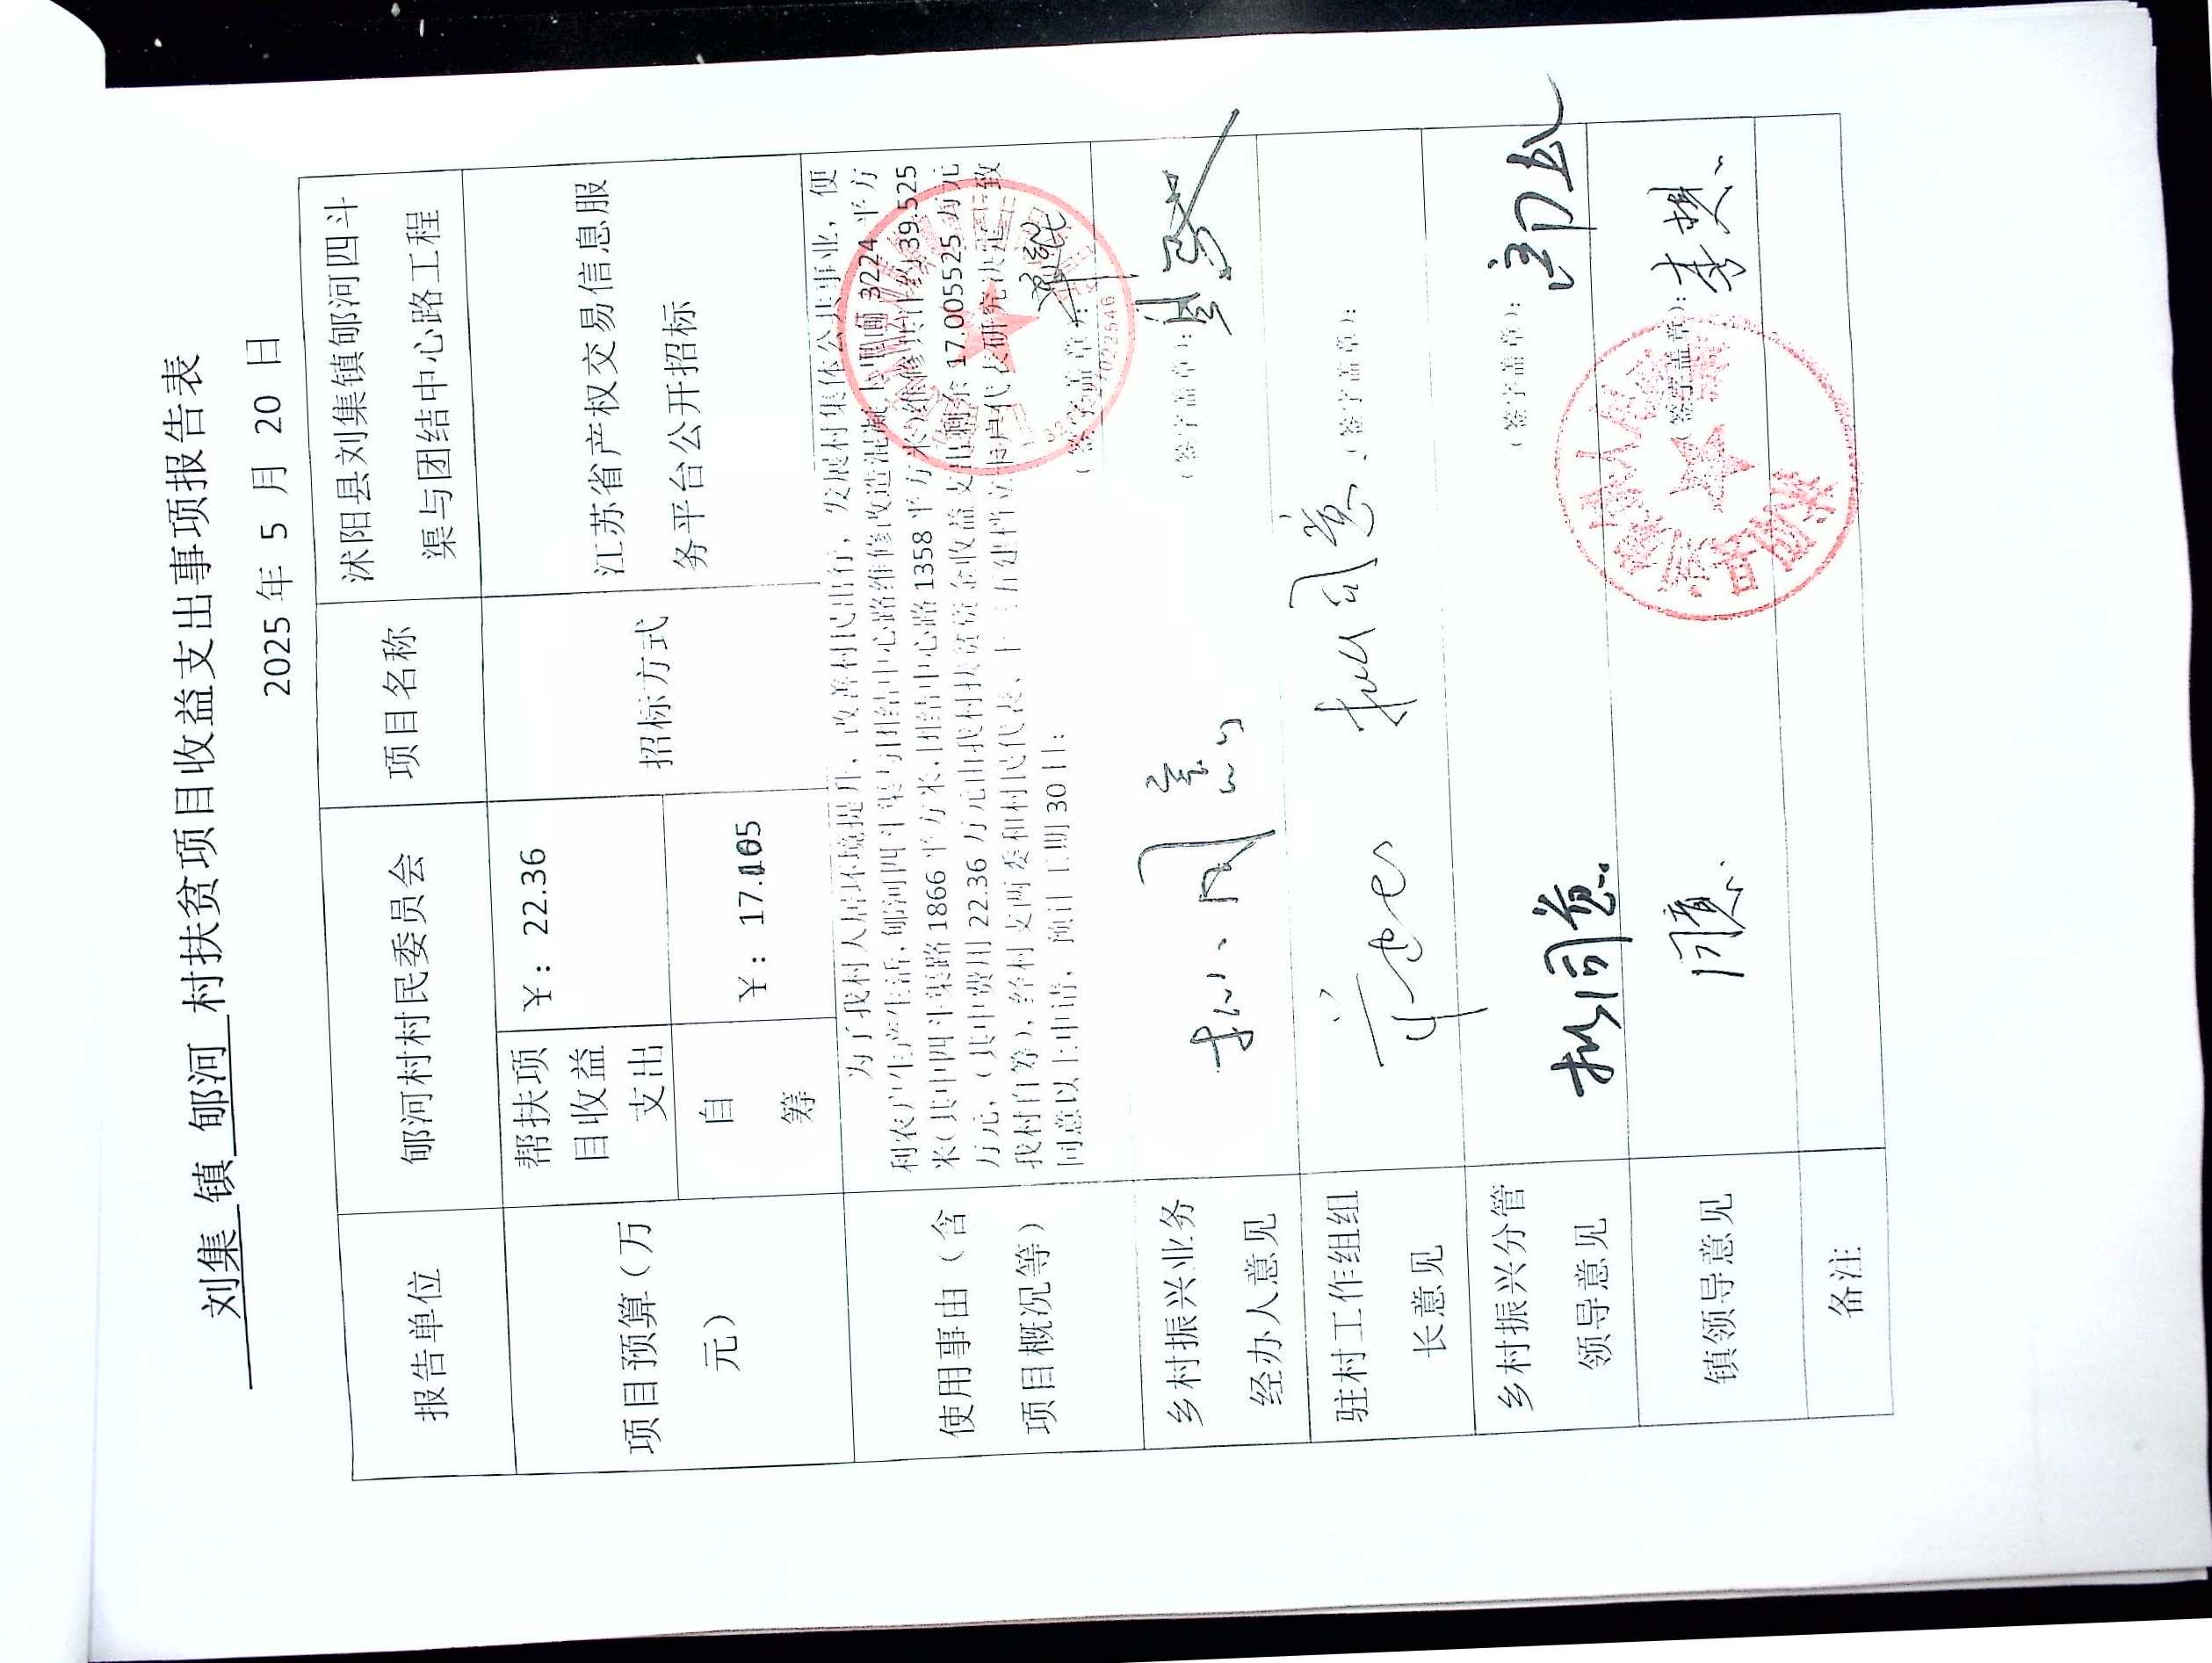 刘集 镇 郇河 村扶贫项目收益支出事项报告表
2025 年 5 月 20 日
报告单位
郇河村村民委员会
项目名称
沭阳县刘集镇郇河四斗
渠与团结中心路工程
项目预算（万
元）
帮扶项
目收益
支出
￥：22.36
自
筹
￥：17.
招标方式
江苏省产权交易信息服
务平台公开招标
使用事由（含
项目概况等）
为了我村人居环境提升，改善村民出行，发展村集体公共事业，便
利农户生产生活，郇河四斗渠与团结中心路维修改造混凝土路面 3224 平方
米(其中四斗渠路 1866 平方米，团结中心路 1358 平方米)维修共计约 39.525
万元，（其中费用 22.36 万元由我村扶贫资金收益支出剩余 17.005525 万元
我村自筹)，经村支两委和村民代表、十三五建档立卡户代表研究决定一致
同意以上申请，预计工期 30 日；
（签字盖章）：
乡村振兴业务
经办人意见
拟同意
（签字盖章）：
驻村工作组组
长意见
拟同意
（签字盖章）：
乡村振兴分管
领导意见
拟同意
（签字盖章）：
镇领导意见
同意
（签字盖章）：
备注